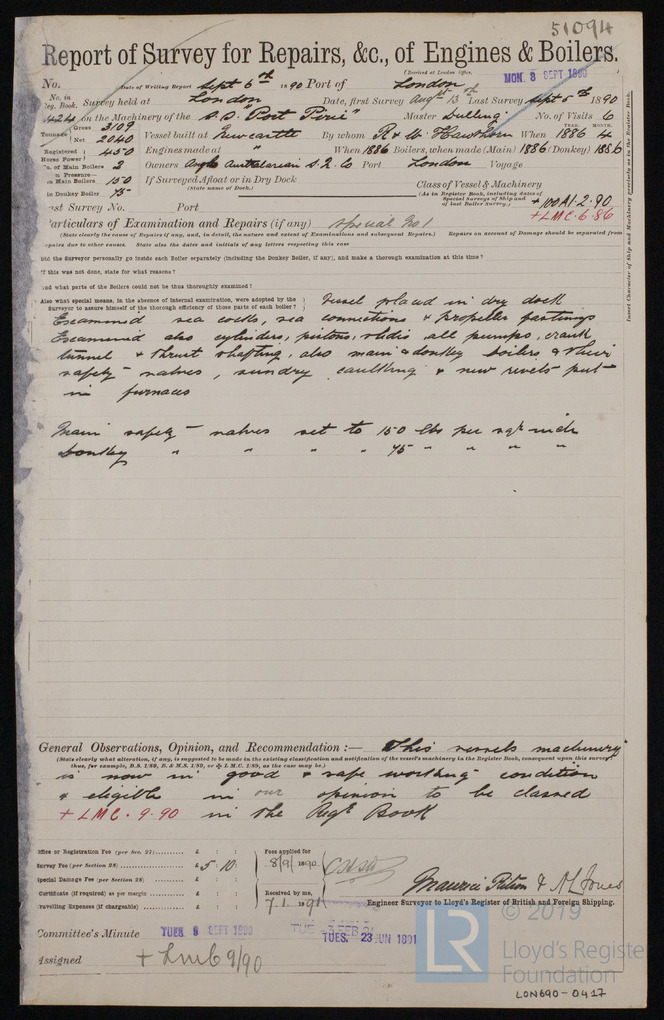 51094
Report of Survey for Repairs, &c., of Engines & Boilers.
(Received at London Office,
MON. 8 SEPT 1890
No. Date of Writing Report Sept 6th 1890 Port of London
No. in Reg. Book. Survey held at London Date, first Survey Augst 13th Last Survey Sept 5th 1890
424 on the Machinery of the S.S. "Port Pirie" Master No. of Visits 6
Tonnage Gross 3109 Net 2040 Vessel built at Newcastle By whom R & W. Hawthorn When YEAR. 1886 MONTH. 4
Registered Horse Power 450 Engines made at " When 1886 Boilers, when made (Main) 1886 (Donkey) 1886
No. of Main Boilers 2 Owners Anglo Australasian S.N. Co Port London Voyage
Pressure— in Main Boilers 150 If Surveyed Afloat or in Dry Dock
(State name of Dock.)
in Donkey Boiler 75
Class of Vessel & Machinery
(As in Register Book, including dates of Special Surveys of Ship and of last Boiler Survey.)
+100A1.2.90
+LMC.6.86
Last Survey No. Port
Particulars of Examination and Repairs (if any) Special No 1
(State clearly the cause of Repairs if any, and, in detail, the nature and extent of Examinations and subsequent Repairs.) Repairs on account of Damage should be separated from
Repairs due to other causes. State also the dates and initials of any letters respecting this case
Did the Surveyor personally go inside each Boiler separately (including the Donkey Boiler, if any), and make a thorough examination at this time?
If this was not done, state for what reasons?
And what parts of the Boilers could not be thus thoroughly examined?
Also what special means, in the absence of internal examination, were adopted by the Surveyor to assure himself of the thorough efficiency of those parts of each boiler? Vessel placed in dry dock
Examined sea cocks, sea connections & propeller fastings
Examined also cylinders, pistons, slides all pumps, crank
tunnel & thrust shafting, also main & donkey boilers, & their
safety-valves, sundry caulking & new rivets put
in furnaces
Main safety-valves set to 150 lbs per sqr inch
Donkey " " " " 75 " " " "
Insert Character of Ship and Machinery precisely as in the Register Book.
General Observations, Opinion, and Recommendation :— This vessels machinery
(State clearly what alteration, if any, is suggested to be made in the existing classification and notification of the vessel's machinery in the Register Book, consequent upon this survey,
thus, for example, B.S. 1/89, B. & M.S. 1/89, or ✠ L.M.C. 1/89, as the case may be.)
is now in good & safe working condition
& eligible in our opinion to be classed
+ LMC. 9.90 in the Regr Book
Office or Registration Fee (per Sec. 27) £ : :
Survey Fee (per Section 28) £ 5 : 10 :
Special Damage Fee (per Section 28) £ : :
Certificate (if required) as per margin £ : :
Travelling Expenses (if chargeable) £ : :
Fees applied for
8/9/1890
Received by me,
7.1.1891
& A L Jones
Engineer Surveyor to Lloyd's Register of British and Foreign Shipping.
Committee's Minute TUES 9 SEPT 1890
TUES. 23 JUN 1891
Assigned + LMC 9/90
LR
© 2019
Lloyd's Register
Foundation
LON690-0417